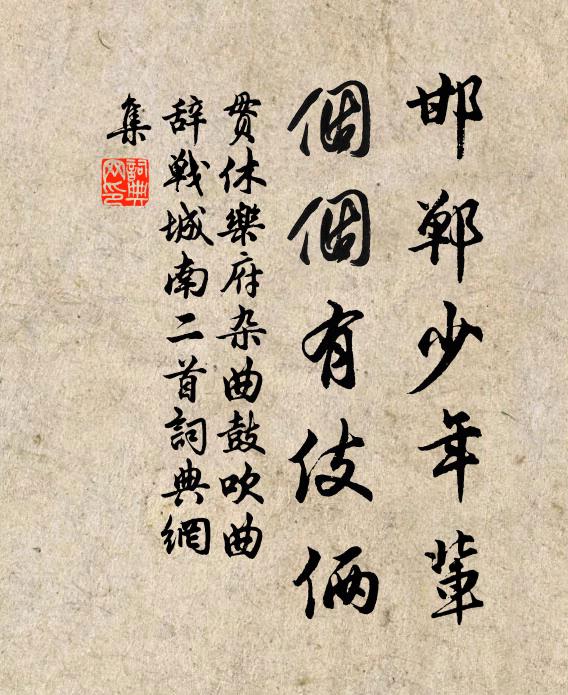 邯鄲少年輩
個個有伎倆
貫休樂府杂曲鼓吹曲
辞戦城南二首詞典網
集
詞典
网印